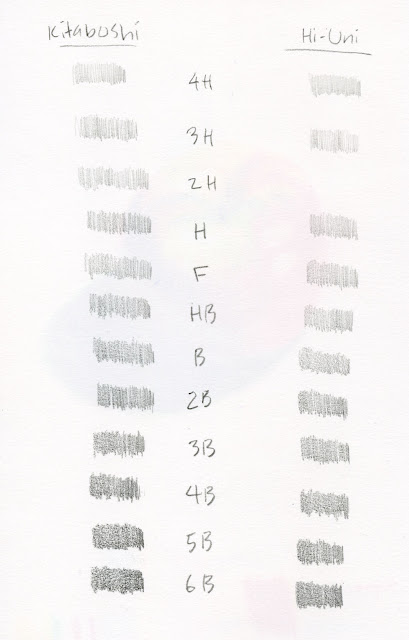 Kitaboshi Hi-Uni
4H
3H
2H
H
F
HB
B
2B
3B
4B
5B
6B